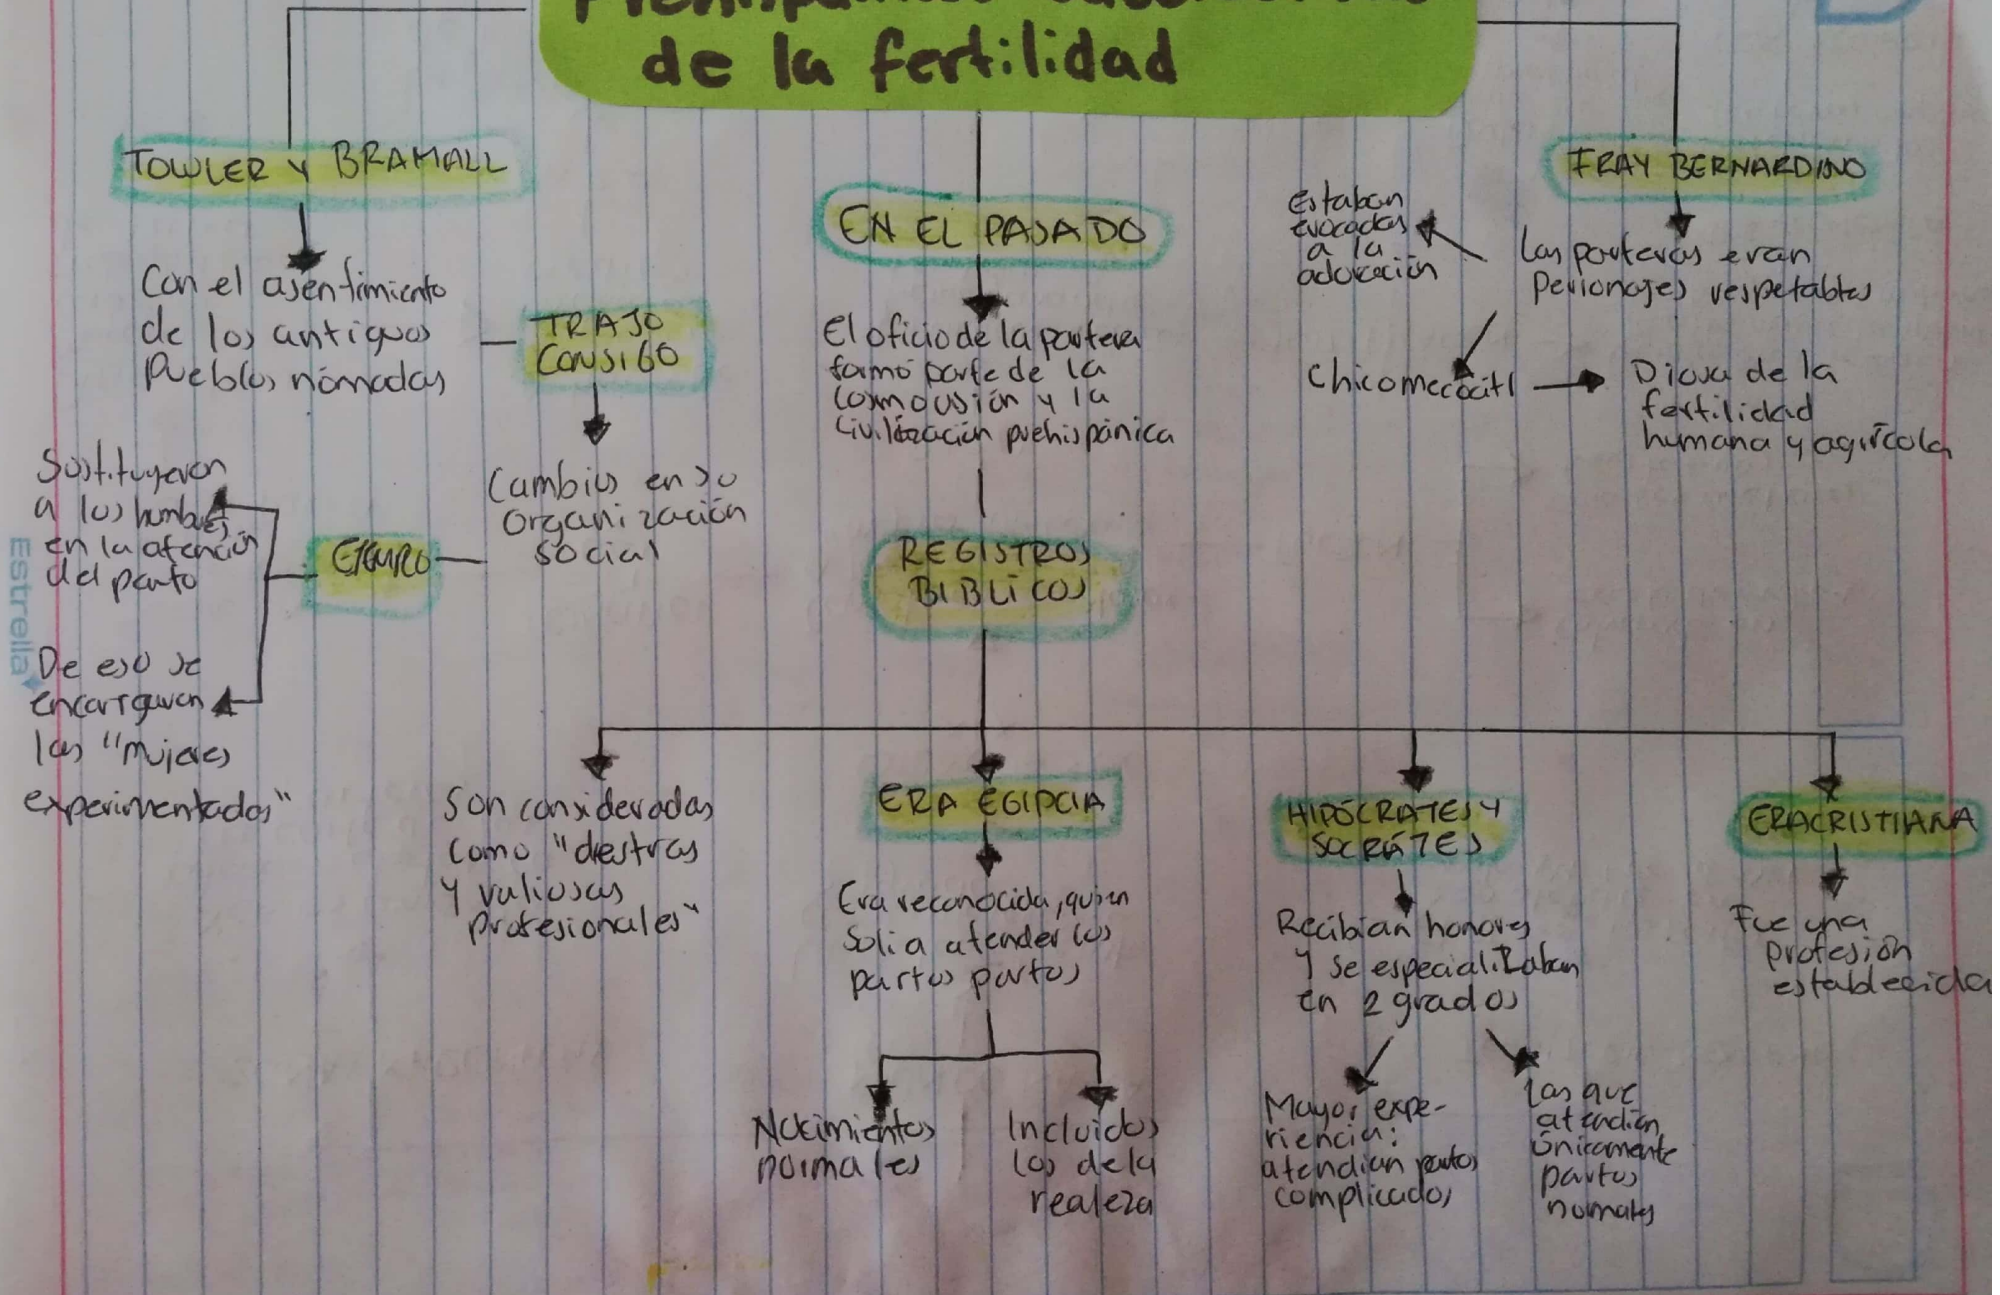 de la fertilidad
TOWLER Y BRAMALL
Con el asentimiento
de los antiguos
Pueblos nómadas
TRAJO
CONSIGO
Cambios en su
organización
social
EJEMPLO
Sustituyeron
a los hombres
en la atención
del parto
De eso se
encargaron
las "mujeres
experimentadas"
EN EL PASADO
El oficio de la partera
formo parte de la
Cosmovisión y la
Civilización prehispánica
REGISTROS
BIBLICOS
Son consideradas
como "diestras
y valiosas
profesionales"
ERA EGIPCIA
Era reconocida, quien
Solia atender los
partos partos
Nacimientos
normales
Incluidos
los de la
realeza
HIPÓCRATES Y
SOCRÁTES
Recibian honores
Y se especializaban
en 2 grados
Mayor expe-
riencia:
atendian partos
complicados
Las que
atendian
únicamente
partos
normales
ERA CRISTIANA
Fue una
profesión
establecida
FRAY BERNARDINO
Las parteras eran
Personajes respetables
Estaban
evocadas
a la
adoración
Chicomecóatl
Diosa de la
fertilidad
humana y agrícola
Estrella